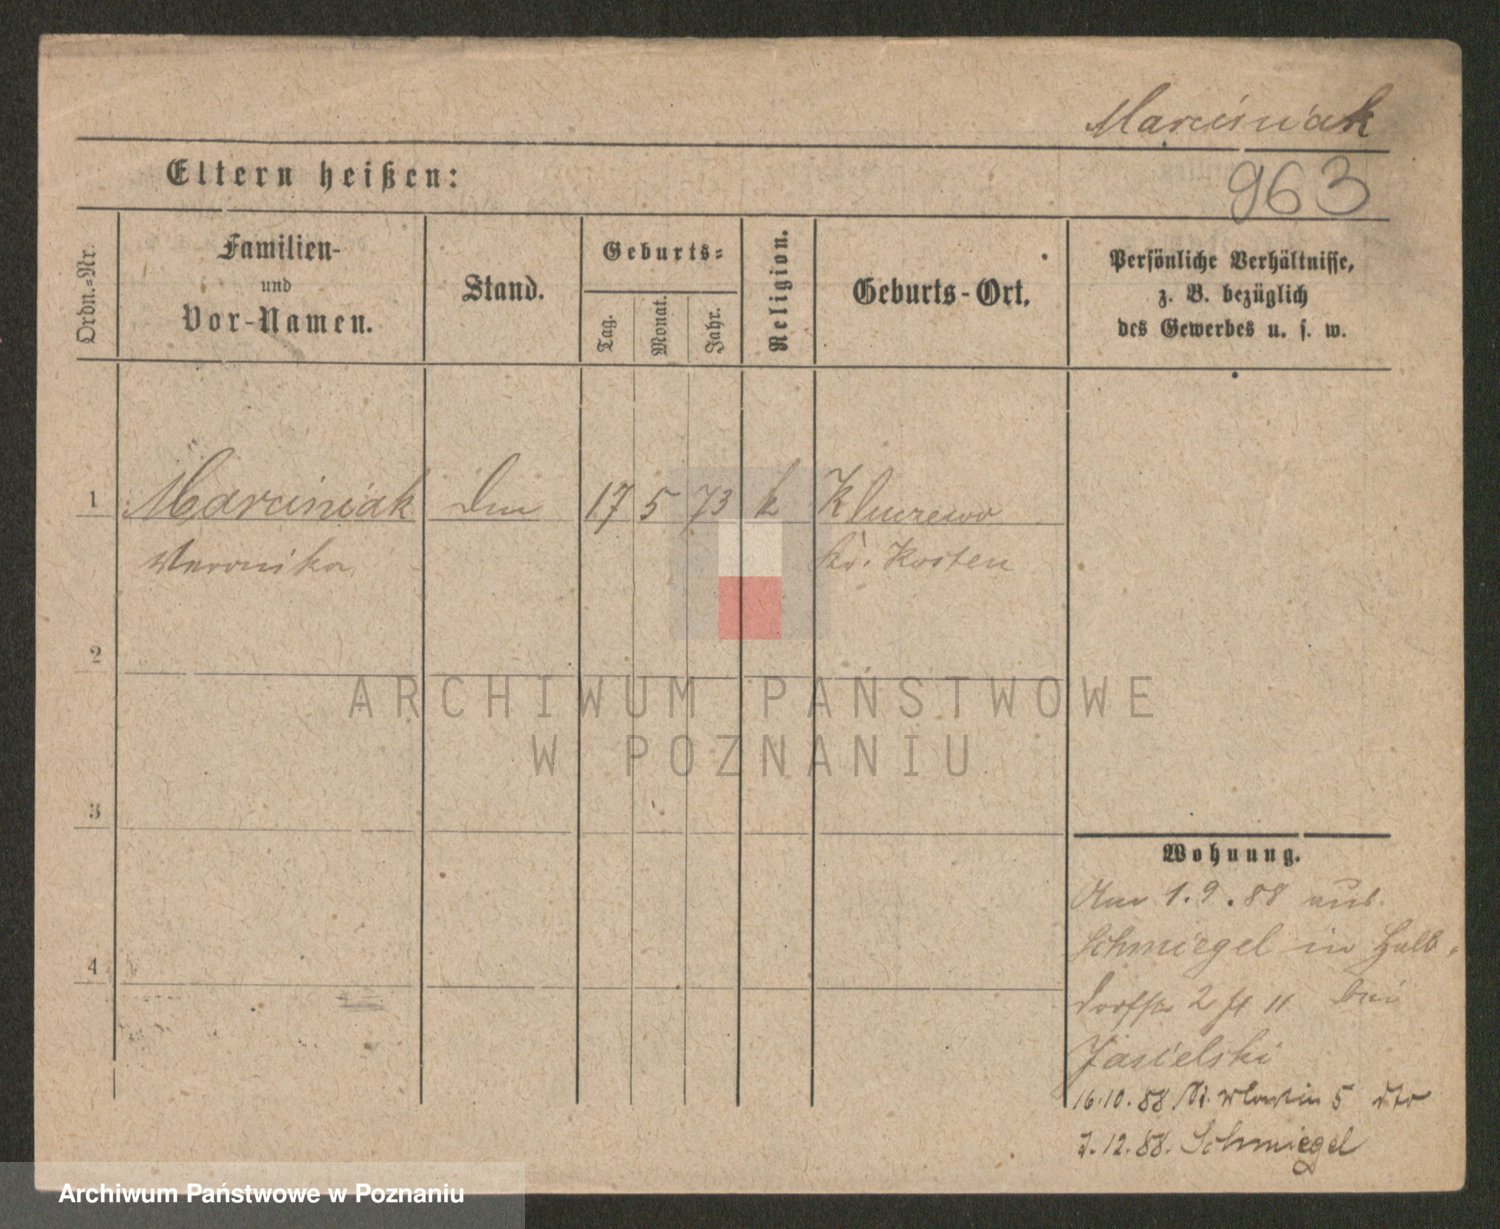 Marciniak
963
Eltern heißen:
Ordn.-Nr.
Familien-
und
Vor-Namen.
Stand.
Geburts-
Tag.
Monat.
Jahr.
Religion.
Geburts-Ort.
Persönliche Verhältnisse,
z. B. bezüglich
des Gewerbes u. s. w.
1 Marciniak 17 5 73 k Kluczewo
Veronika Kr. Kosten
2
ARCHIWUM PAŃSTWOWE
W POZNANIU
3
Wohnung.
1.9.88 aus
Schmiegel in Halb-
dorfstr. 2 H II bei
4
Jasielski
16.10.88 St. 5 dto
7.12.88. Schmiegel
Archiwum Państwowe w Poznaniu